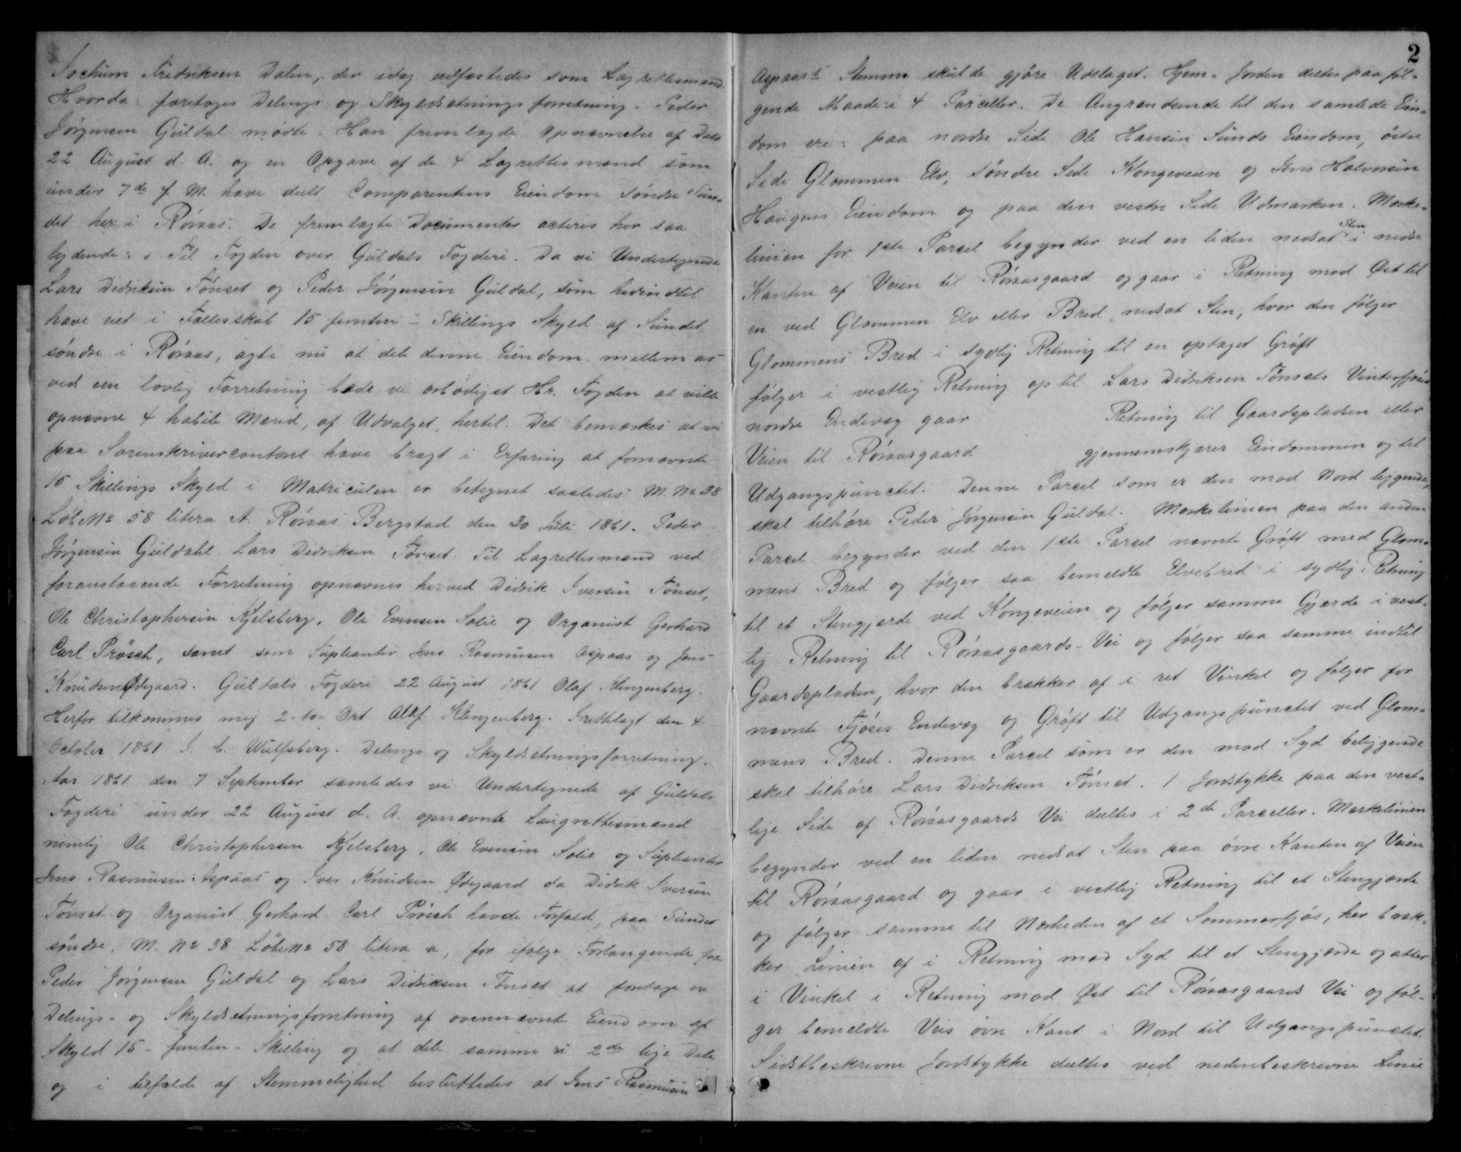 Jochum Fredriksen Dalen, der idag edfæstedes som Lagrettesmand.
Hvorda foretoges Delings og Skyldsætningsforretning. Peder
Jørgensen Guldal mødte. Han fremlagde Opnævnelse af Dato
22 August d. A. og en Opgave af de 4 Lagrettesmænd som
under 7de f. M. have deelt Comparentens Eiendom søndre Sun-
det her i Røraas. De fremlagte Documenter acteres her saa
lydende: s Til Fogden over Guldals Fogderi. Da vi Undertegnede
Lars Didriksen Tønset og Peder Jørgensen Guldal, som hidindtil
have eiet i Fællesskab 15 femten - Skillings Skyld af Sundet
søndre i Røraas, agte nu at dele denne Eiendom mellem os
ved een lovlig Forretning bede vi ærbødigst Hr. Fogden at ville
opnævne 4 habile Mænd, af Udvalget, hertil. Det bemærkes at vi
paa Sorenskrivercontoret have bragt i Erfaring at fornævnte
15 Skillings Skyld i Matriculen er betegnet saaledes: M. No 38
Løb No 58 litera A. Røraas Bergstad den 30 Juli 1861. Peder
Jørgensen Guldahl. Lars Didriksen Tønset. Til Lagrettesmænd ved
foranstaaende Forretning opnævnes herved Didrik Iversen Tønset,
Ole Christophersen Kjelsberg, Ole Evensen Solie og Organist Gerhard
Carl Prösch, samt som Supleanter Jens Rasmusen Aspaas og Jens
Knudsen Ødegaard. Guldals Fogderi 22 August 1861 Olaf Klingenberg.
Herfor tilkommer mig 2 - to - Ort Olaf Klingenberg. Indlagt den 4
October 1861 J. C. Wulfsberg. Delings og Skyldsætningsforretning.
Aar 1861 den 7 September samledes vi Undertegnede af Guldals
Fogderi under 22 August d. A. opnævnte Laugrettesmænd
nemlig Ole Christophersen Kjelsberg, Ole Evensen Solie og Supleanter
Jens Rasmusen Aspaas og Iver Knudsen Ødegaard da Didrik Iversen
Tønset og Organist Gerhard Carl Prösch havde Forfald, paa Sundet
søndre, M. No 38 Løb No 58 litera a, for ifølge Forlangende fra
Peder Jørgensen Guldal og Lars Didriksen Tønset at foretage en
Delings- og Skyldsætningsforretning af ovennævnte Eiendom af
Skyld 15 - femten - Skilling og at dele samme i 2de lige Dele
og i tilfælde af Stemmelighed besluttedes at Jens Rasmusen
2
Aspaas's Stemme skulde gjøre Udslaget. Hjem-Jorden deeltes paa føl-
gende Maade i 4 Parceller. De Angrændsende til den samlede Eien-
dom ere: paa nordre Side Ole Hansen Sunds Eiendom, østre
Side Glommen Elv, søndre Side Kongeveien og Jens Halvorsen
Haugens Eiendom og paa den vestre Side Udmarken. Mærke-
linien for 1ste Parcel begynder ved en liden nedsat Sten i nedre
Kanten af Veien til Røraasgaard og gaar i Retning mod Øst til
en ved Glommen Elv eller Bred nedsat Sten, hvor den følger
Glommens Bred i sydlig Retning til en optaget Grøft
følger i vestlig Retning op til Lars Didriksen Tønsets Vinterfjøs
nordre Endevæg gaar Retning til Gaardspladsen eller
Veien til Røraasgaard gjennemskjærer Eiendommen og til
Udgangspunctet. Denne Parcel som er den mod Nord liggende,
skal tilhøre Peder Jørgensen Guldal. Mærkelinien paa den anden
Parcel begynder ved den 1ste Parcel nævnte Grøft med Glom-
mens Bred og følger saa bemeldte Elvebred i sydlig Retning
til et Stengjerde ved Kongeveien og følger samme Gjerde i vest-
lig Retning til Røraasgaards-Vei og følger saa samme indtil
Gaardspladsen, hvor den brækker af i ret Vinkel og følger for
nævnte Fjøses Endevæg og Grøft til Udgangspunctet ved Glom-
mens Bred. Denne Parcel som er den mod Syd beliggende
skal tilhøre Lars Didriksen Tønset. 1 Jordstykke paa den vest-
lige Side af Røraasgaards Vei deeltes i 2de Parceller. Mærkelinien
begynder ved en liden nedsat Sten paa øvre Kanten af Veien
til Røraasgaard og gaar i vestlig Retning til et Stengjærde
og følger samme til Nærheden af et Sommerfjøs, her bræk-
ker Linien af i Retning mod Syd til et Stengjærde og atter
i Vinkel i Retning mod Øst til Røraasgaards Vei og føl-
ger bemeldte Veis øvre Kant i Nord til Udgangspunctet.
Sidstbeskrevne Jordstykke deeltes ved nedenbeskrevne Linie